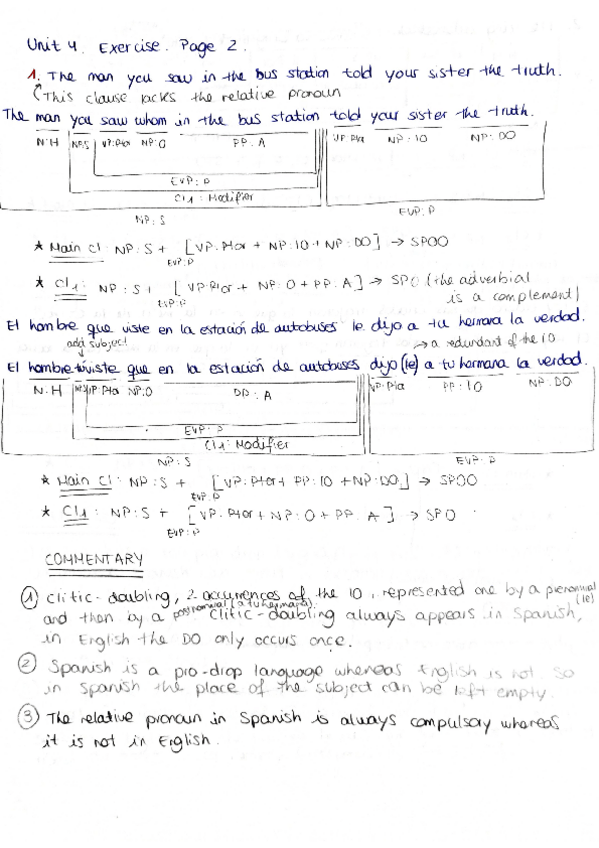 Unit 4. Exercise. Page 2.
1. The man you saw in the bus station told your sister the truth.
This clause lacks the relative pronoun
The man you saw whom in the bus station told your sister the truth.
N:H NP:S VP:Ptor NP:O PP:A VP:Ptor NP:IO NP:DO
EVP:P
Cl1: Modifier
NP:S EVP:P
* Main Cl: NP:S + [VP:Ptor + NP:IO + NP:DO] → SPOO
EVP:P
* Cl1: NP:S + [VP:Ptor + NP:O + PP:A] → SPO (the adverbial
EVP:P is a complement)
El hombre que viste en la estación de autobuses le dijo a tu hermana la verdad.
adj subject → a redundant of the IO
El hombre tu viste que en la estación de autobuses dijo (le) a tu hermana la verdad.
N:H NP:S VP:Ptor NP:O PP:A VP:Ptor PP:IO NP:DO
EVP:P
Cl1: Modifier
NP:S EVP:P
* Main Cl: NP:S + [VP:Ptor + PP:IO + NP:DO] → SPOO
EVP:P
* Cl1: NP:S + [VP:Ptor + NP:O + PP:A] → SPO
EVP:P
COMMENTARY
1 Clitic-doubling, 2 occurrences of the IO, represented one by a prenominal (le)
and then by a postnominal (a tu hermana). Clitic-doubling always appears in Spanish,
in English the DO only occurs once.
2 Spanish is a pro-drop language whereas English is not. So
in Spanish the place of the subject can be left empty.
3 The relative pronoun in Spanish is always compulsory whereas
it is not in English.